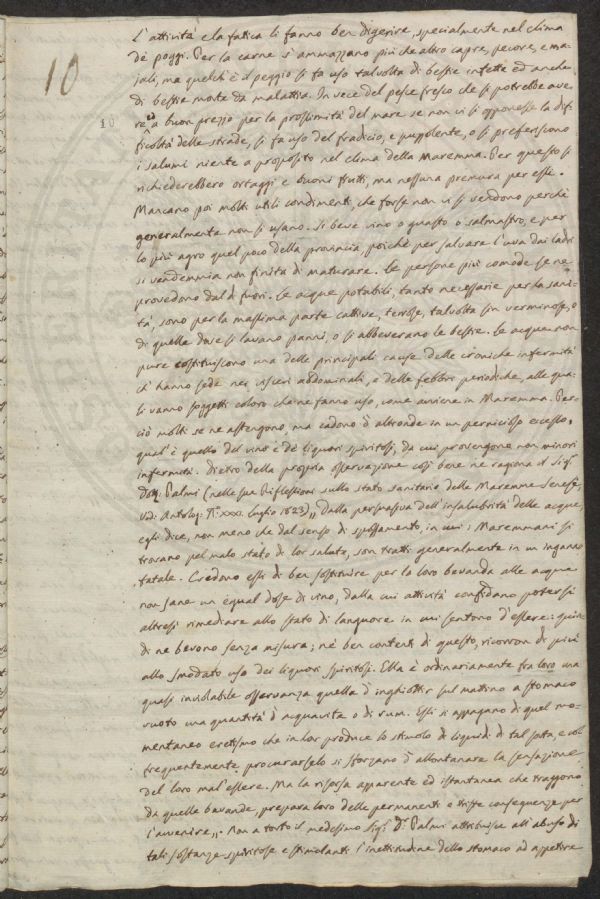 10
10
L'attività e la fatica li fanno ben digerire, specialmente nel clima
de' poggi. Per la carne s'ammazzano più che altro capre, pecore, e ma-
jali, ma quel ch'è il peggio si fa uso talvolta di bestie infette ed anche
di bestie morte da malattia. In vece del pesce fresco che si potrebbe ave-
re a buon prezzo per la prossimità del mare se non vi si opponesse la dif-
ficoltà delle strade, si fa uso del fradicio, e puzzolente, o si preferiscono
i salumi niente a proposito nel clima della Maremma. Per questo si
richiederebbero ortaggi e buoni frutti, ma nessuna premura per essi.
Mancano poi molti utili condimenti che forse non vi si vendono perchè
generalmente non si usano. Si beve vino o guasto o salmastro, e per
lo più agro quel poco della provincia, poichè per salvare l'uva dai ladri
si vendemmia non finita di maturare. Le persone più comode se ne
provedono dal di fuori. Le acque potabili, tanto necessarie per la sani-
tà, sono per la massima parte cattive, terrose, talvolta fin verminose, o
di quelle dove si lavano panni, o si abbeverano le bestie. Le acque non
pure costituiscono una delle principali cause delle croniche infermità
ch'hanno sede nei visceri addominali, e delle febbri periodiche, alle qua-
li vanno soggetti coloro che ne fanno uso, come avviene in Maremma. Per-
ciò molti se ne astengono, ma cadono d'altronde in un pernicioso eccesso,
qual'è quello del vino e de' liquori spiritosi, da cui provengono non minori
infermità. Dietro della propria osservazione così bene ne ragiona il Sig.r
Dott. Palmi (nelle sue Riflessioni sullo stato sanitario delle Maremme Senesi,
Vid. Antolog. N.o XXXI. Luglio 1823) „ Dalla persuasiva dell'insalubrità delle acque,
egli dice, non meno che dal senso di spossamento, in cui i Maremmani si
trovano pel malo stato di lor salute, son tratti generalmente in un inganno
fatale. Credono essi di ben sostituire per la loro bevanda alle acque
non sane un egual dose di vino, dalla cui attività confidano potersi
altresì rimediare allo stato di languore in cui sentono d'essere: quin-
di ne bevono senza misura; nè ben contenti di questo, ricorron di più
allo smodato uso dei liquori spiritosi. Ella è ordinariamente fra loro una
quasi inviolabile osservanza quella d'inghiottir sul mattino a stomaco
vuoto una quantità d'acquavite o di rum. Essi si appagano di quel mo-
mentaneo eretismo che in lor produce lo stimolo di liquidi di tal fatta, e col
frequentemente procurarselo si sforzano d'allontanare la sensazione
del loro mal'essere. Ma la risorsa apparente ed istantanea che traggono
da quelle bevande, prepara loro delle permanenti e triste conseguenze per
l'avvenire „. Non a torto il medesimo Sig.r D. Palmi attribuisce all'abuso di
tali sostanze spiritose e stimolanti l'inettitudine dello stomaco ad appetire